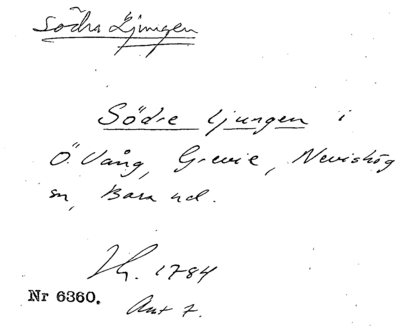 Södra Ljungen
Södre ljungen i
Ö. Vång, Grevie, Nevishög
sn, Bara hd.
Zh. 1784
Nr 6360.
Akt 7.